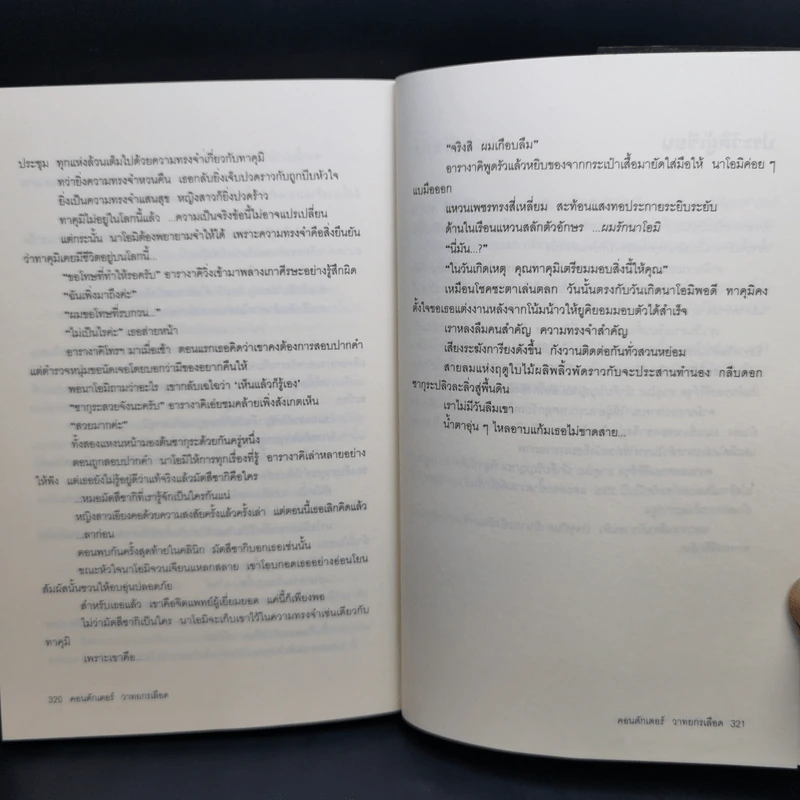 ประชุม ทุกแห่งล้วนเต็มไปด้วยความทรงจำเกี่ยวกับทาคุมิ
ทว่ายิ่งความทรงจำหวนคืน เธอกลับยิ่งเจ็บปวดราวกับถูกบีบหัวใจ
ยิ่งเป็นความทรงจำแสนสุข หญิงสาวก็ยิ่งปวดร้าว
ทาคุมิไม่อยู่ในโลกนี้แล้ว ...ความเป็นจริงข้อนี้ไม่อาจแปรเปลี่ยน
แต่กระนั้น นาโอมิต้องพยายามจำให้ได้ เพราะความทรงจำคือสิ่งยืนยัน
ว่าทาคุมิเคยมีชีวิตอยู่บนโลกนี้...
“ขอโทษที่ทำให้รอครับ” อารางาคิวิ่งเข้ามาพลางเกาศีรษะอย่างรู้สึกผิด
“ฉันเพิ่งมาถึงค่ะ”
“ผมขอโทษที่รบกวน...”
“ไม่เป็นไรค่ะ” เธอส่ายหน้า
อารางาคิโทรฯ มาเมื่อเช้า ตอนแรกเธอคิดว่าเขาคงต้องการสอบปากคำ
แต่ตำรวจหนุ่มขอนัดเจอโดยบอกว่ามีของอยากคืนให้
พอนาโอมิถามว่าอะไร เขากลับเฉไฉว่า ‘เห็นแล้วก็รู้เอง’
“ซากุระสวยจังนะครับ” อารางาคิเอ่ยชมคล้ายเพิ่งสังเกตเห็น
“สวยมากค่ะ”
ทั้งสองแหงนหน้ามองต้นซากุระด้วยกันครู่หนึ่ง
ตอนถูกสอบปากคำ นาโอมิให้การทุกเรื่องที่รู้ อารางาคิเล่าหลายอย่าง
ให้ฟัง แต่เธอยังไม่รู้อยู่ดีว่าแท้จริงแล้วมัตสึซากิคือใคร
...หมอมัตสึซากิที่เรารู้จักเป็นใครกันแน่
หญิงสาวเฝ้าคอยด้วยความสงสัยครั้งแล้วครั้งเล่า แต่ตอนนี้เธอเลิกคิดแล้ว
...ลาก่อน
ตอนพบกันครั้งสุดท้ายในคลินิก มัตสึซากิบอกเธอเช่นนั้น
ขณะหัวใจนาโอมิจวนเจียนแหลกสลาย เขาโอบกอดเธออย่างอ่อนโยน
สัมผัสนั้นชวนให้อบอุ่นปลอดภัย
สำหรับเธอแล้ว เขาคือจิตแพทย์ผู้เยี่ยมยอด แค่นี้ก็เพียงพอ
ไม่ว่ามัตสึซากิเป็นใคร นาโอมิจะเก็บเขาไว้ในความทรงจำเช่นเดียวกับ
ทาคุมิ
เพราะเขาคือ...
320 คอนดักเตอร์ วาทยกรเลือด
“จริงสิ ผมเกือบลืม”
อารางาคิพูดรัวแล้วหยิบของจากกระเป๋าเสื้อมายัดใส่มือให้ นาโอมิค่อย ๆ
แบมือออก
แหวนเพชรทรงสี่เหลี่ยม สะท้อนแสงทอประกายระยิบระยับ
ด้านในเรือนแหวนสลักตัวอักษร ...ผมรักนาโอมิ
“นี่มัน...?”
“ในวันเกิดเหตุ คุณทาคุมิเตรียมมอบสิ่งนี้ให้คุณ”
เหมือนโชคชะตาเล่นตลก วันนั้นตรงกับวันเกิดนาโอมิพอดี ทาคุมิคง
ตั้งใจขอเธอแต่งงานหลังจากโน้มน้าวให้ยูคิยอมมอบตัวได้สำเร็จ
เราหลงลืมคนสำคัญ ความทรงจำสำคัญ
เสียงระฆังการียงดังขึ้น กังวานติดต่อกันทั่วสวนหย่อม
สายลมแห่งฤดูใบไม้ผลิพลิ้วพัดราวกับจะประสานทำนอง กลีบดอก
ซากุระปลิวละลิ่วสู่พื้นดิน
เราไม่มีวันลืมเขา
น้ำตาอุ่น ๆ ไหลอาบแก้มเธอไม่ขาดสาย...
คอนดักเตอร์ วาทยกรเลือด 321